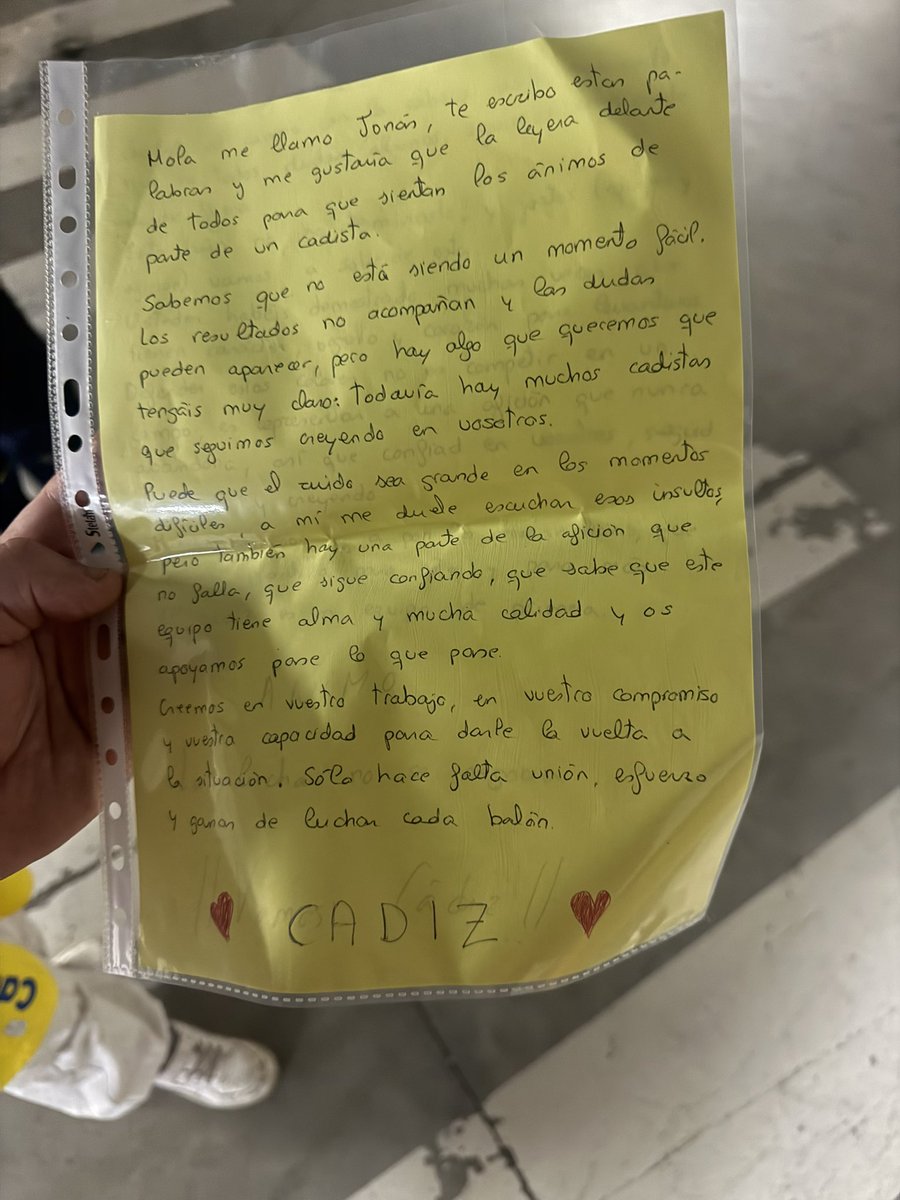 Hola me llamo Jonás, te escribo estas pa-
labras y me gustaría que la leyera delante
de todos para que sientan los ánimos de
parte de un cadista.
Sabemos que no está siendo un momento fácil.
Los resultados no acompañan y las dudas
pueden aparecer, pero hay algo que queremos que
tengáis muy claro: Todavía hay muchos cadistas
que seguimos creyendo en vosotros.
Puede que el ruido sea grande en los momentos
difíciles, a mí me duele escuchar esos insultos,
pero También hay una parte de la afición que
no falla, que sigue confiando, que sabe que este
equipo tiene alma y mucha calidad y os
apoyamos pase lo que pase.
Creemos en vuestro trabajo, en vuestro compromiso
y vuestra capacidad para darle la vuelta a
la situación. Sólo hace falta unión, esfuerzo
y ganas de luchar cada balón.
CADIZ